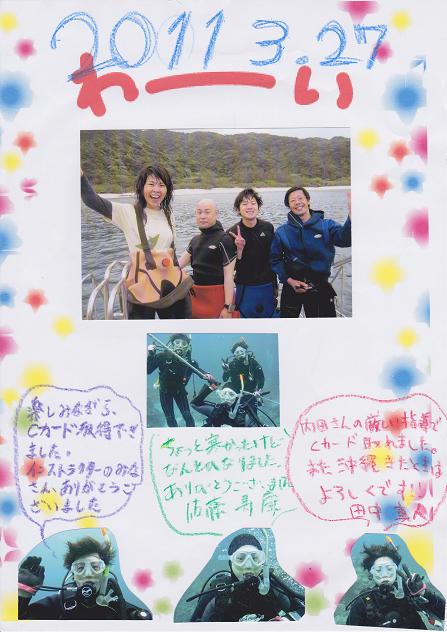 2011 3.27
わーい
楽しみながら、
Cカード取得でき
ました。
インストラクターのみな
さん、ありがとうご
ざいました
ちょっと寒かったけど
なんとかなりました。
ありがとうございました
佐藤
内田さんの厳しい指導で
Cカード取れました。
また沖縄きたときは
よろしくです!!
田中